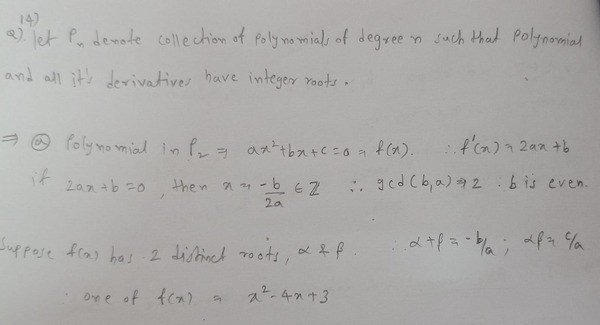 14)
Q). let Pn denote collection of polynomials of degree n such that polynomial
and all it's derivatives have integer roots.
⇒ (a) Polynomial in P₂ ⇒ ax²+bx+c=0 = f(x). ∴ f'(x) = 2ax+b
if 2ax+b=0, then x = -b/2a ∈ ℤ ∴ gcd(b,a) ⇒ 2 . b is even.
Suppose f(x) has 2 distinct roots, α & β. ∴ α+β = -b/a ; αβ = c/a
∴ one of f(x) = x²-4x+3